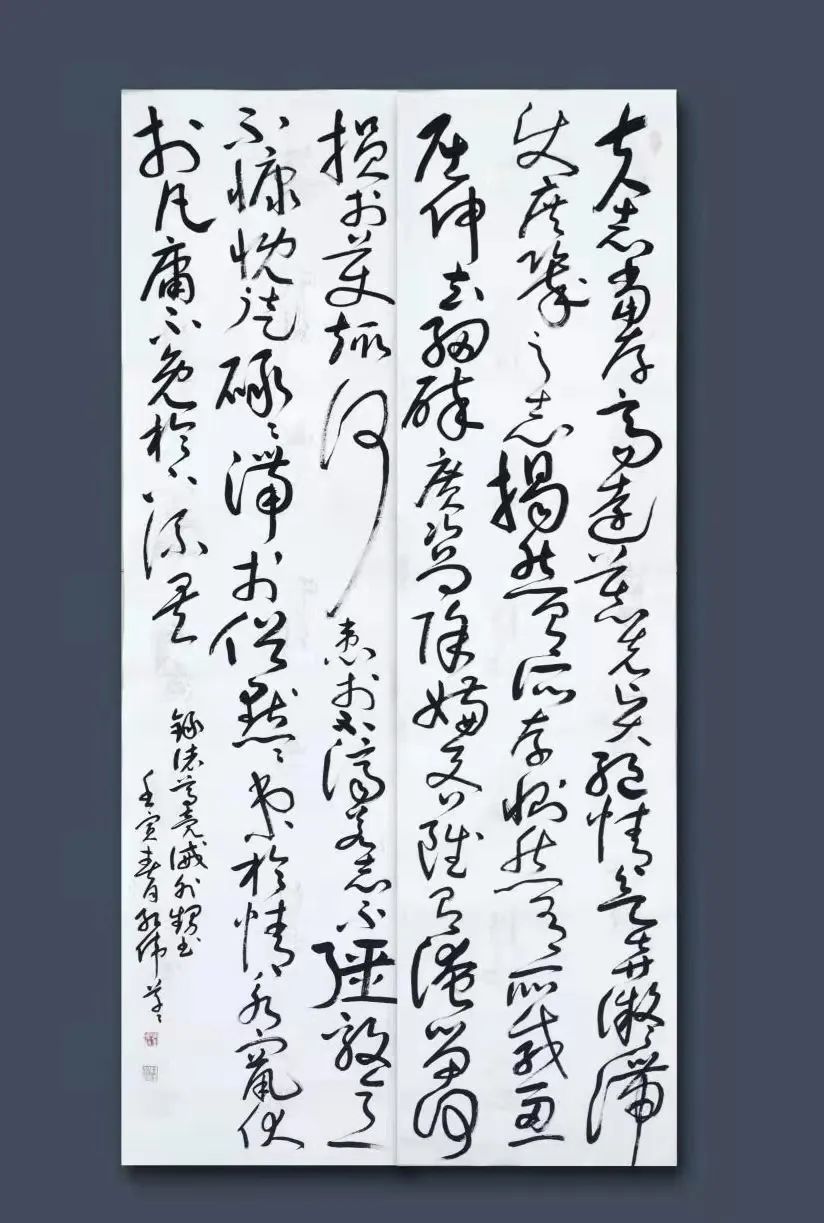 夫志當存高遠慕先賢絕情欲弃凝滯
使庶幾之志揭然有所存惻然有所感忍
屈伸去細碎廣咨問除嫌吝雖有淹留何
損於美趣何患於不濟若志不彊毅意
不慷慨徒碌碌滯於俗默默束於情永竄伏
於凡庸不免於下流矣
錄諸葛亮誡外甥書
壬寅春月